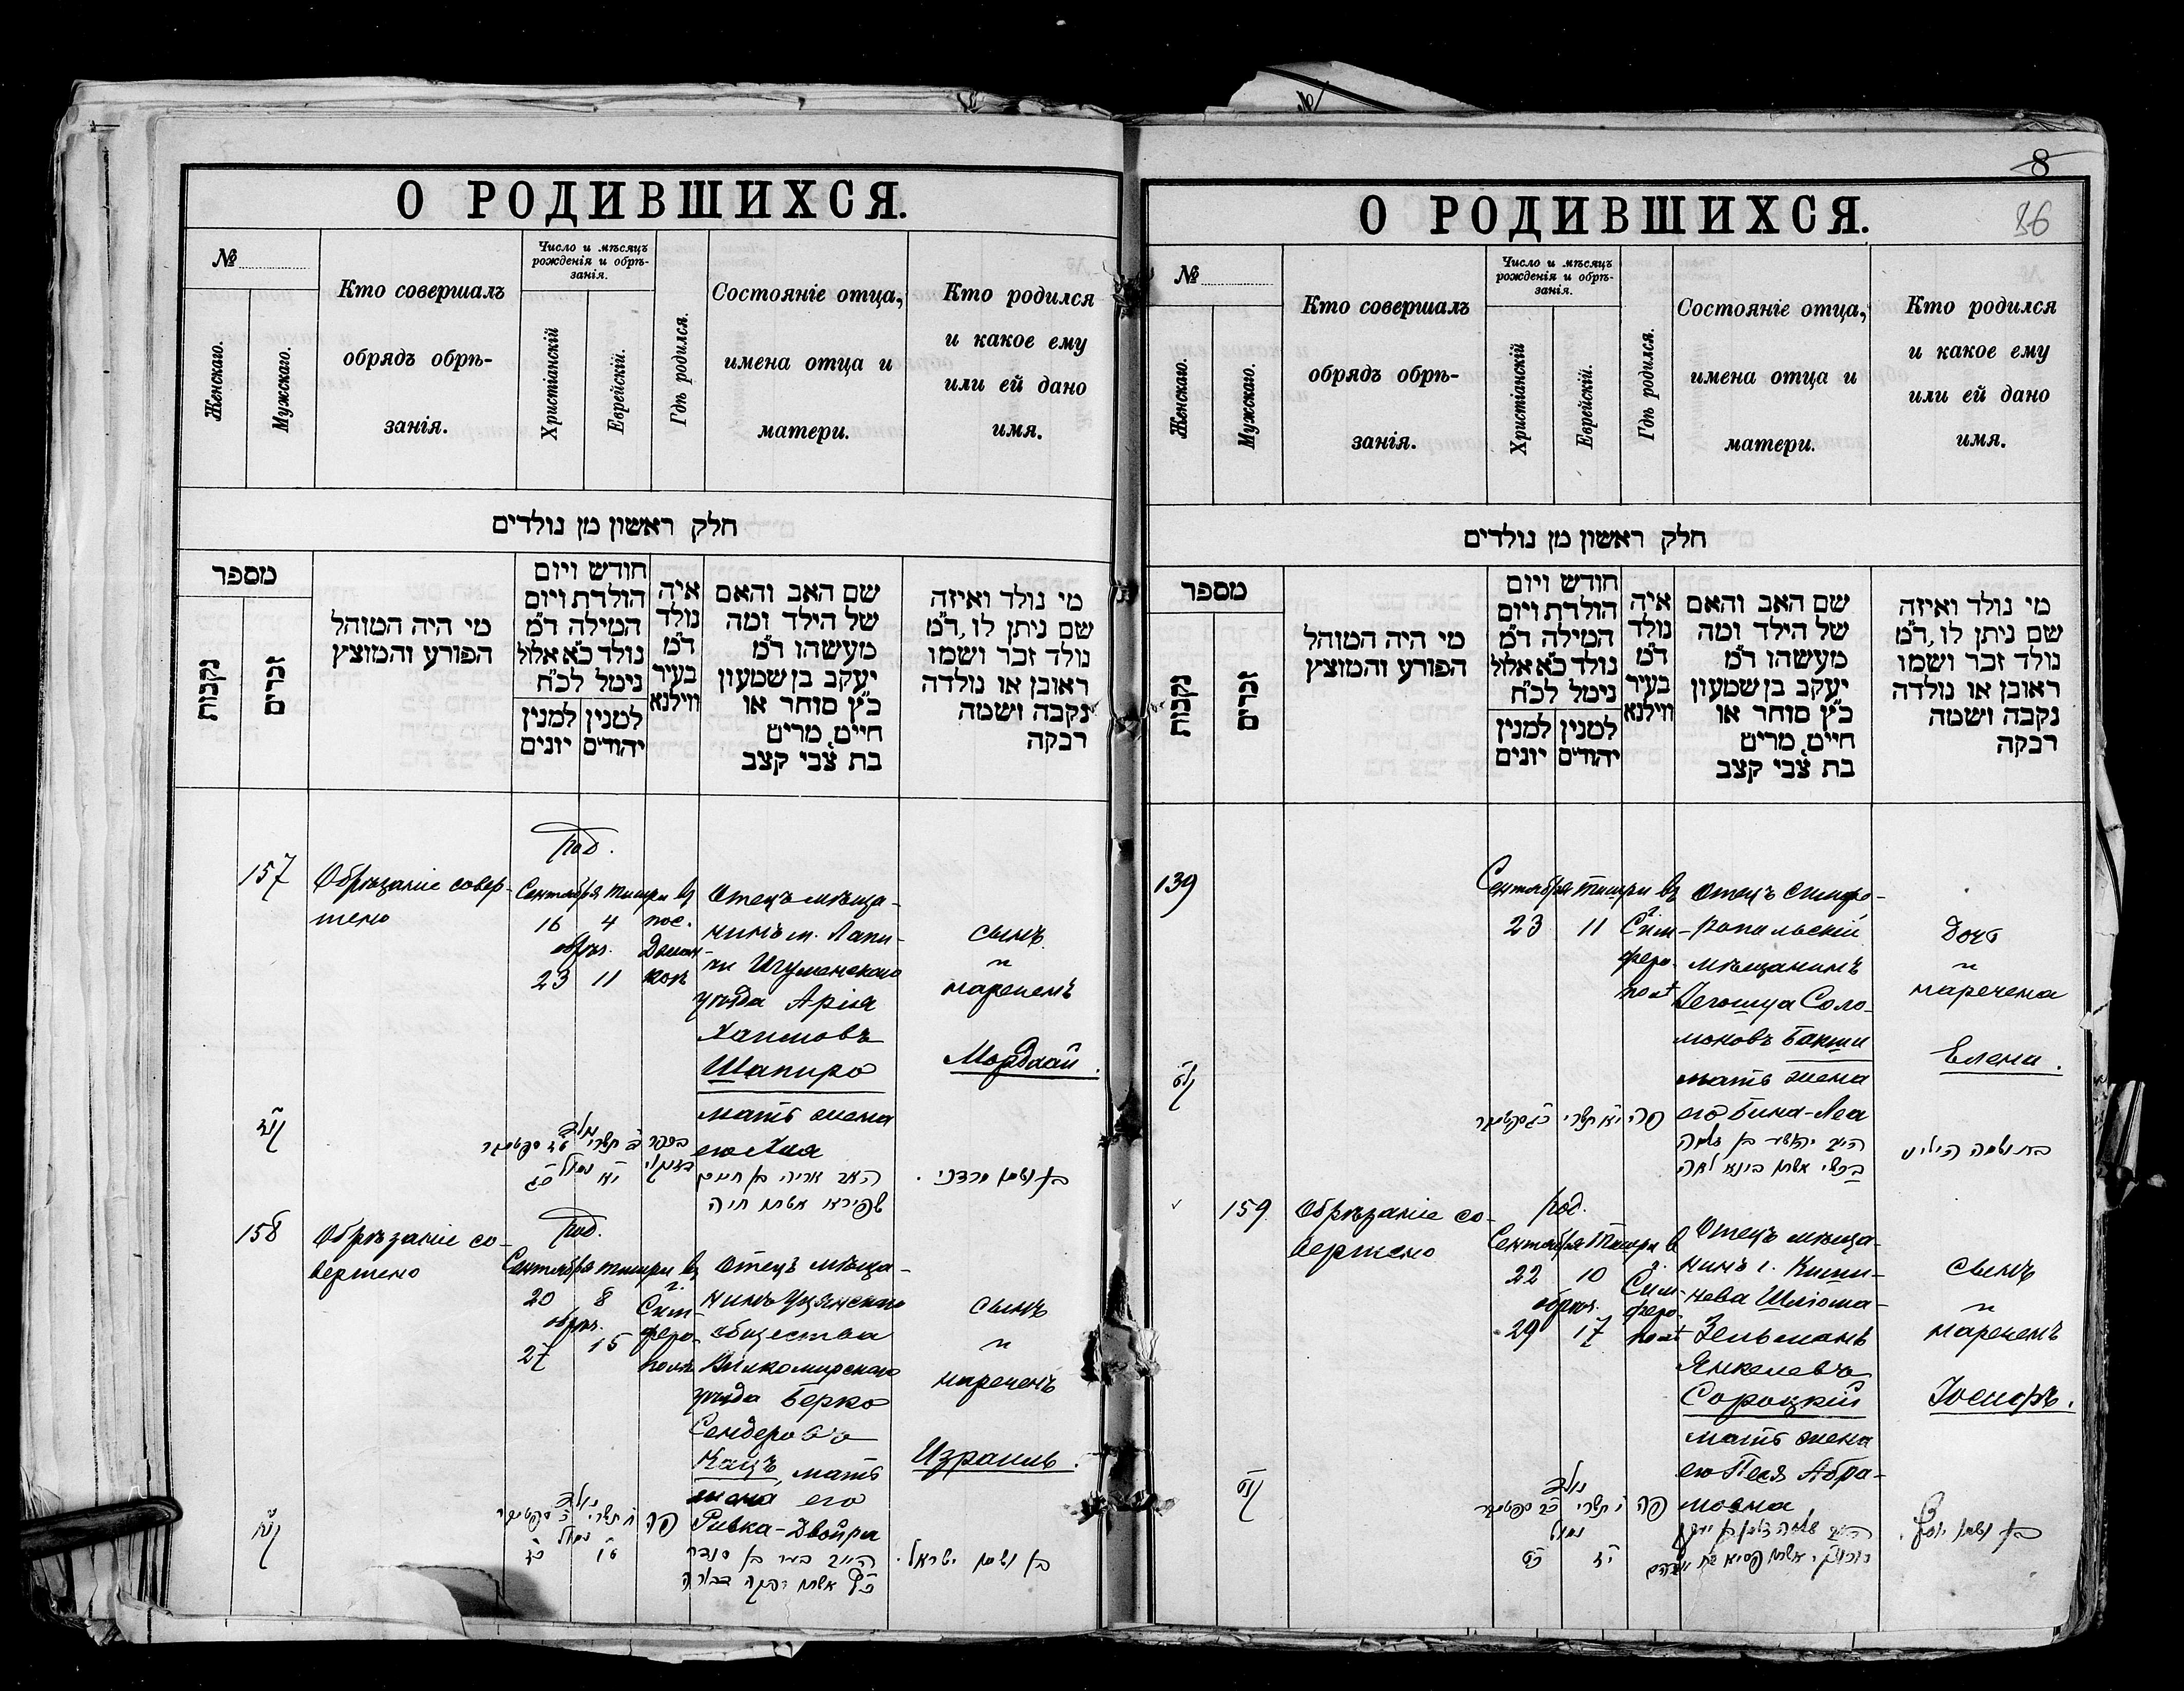 О РОДИВШИХСЯ.
№
Женскаго.
Мужскаго.
Кто совершалъ
обрядъ обрѣ-
занія.
Число и мѣсяцъ
рожденія и обрѣ-
занія.
Христіанскій
Еврейскій.
Гдѣ родился.
Состояніе отца,
имена отца и
матери.
Кто родился
и какое ему
или ей дано
имя.
חלק ראשון מן נולדים
מספר
נקבות
זכרים
מי היה המוהל
הפורע והמוצץ
חודש ויום
הולדת ויום
המילה ד"מ
נולד כ"א אלול
נימל לכ"ח
למנין יהודים
למנין יונים
איה
נולד
ד"מ
בעיר
ווילנא
שם האב והאם
של הילד ומה
מעשהו ד"מ
יעקב בן שמעון
כ"ץ סוחר או
חייט, מרים
בת צבי קצב
מי נולד ואיזה
שם ניתן לו, ד"מ
נולד זכר ושמו
ראובן או נולדה
נקבה ושמה
רבקה
157
Обрѣзаніе совер-
шено
Род.
Сентября Тишри въ
16 4 пос.
обрѣз.
23 11
Отецъ мѣща-
нинъ м. Лапи-
чи Игуменскаго
уѣзда Арія
Хаимовъ
Шапиро
мать жена
его Хая
сынъ
и
нареченъ
Мордхай.
האב אריה בן חיים
שפירא אשתו חיה
בן ושמו מרדכי.
158
Обрѣзаніе со-
вершено
Род.
Сентября Тишри въ
20 8 г. Сим-
обрѣз. феро-
27 15 полѣ
Отецъ мѣща-
нинъ Уцянскаго
общества
Вилкомирскаго
уѣзда Берко
Сендеровъ
Кацъ, мать
жена его
Ривка-Двойра
сынъ
и
нареченъ
Израиль.
כ"ץ אשתו רבקה דבורה
בן ושמו ישראל.
8
36
О РОДИВШИХСЯ.
№
Женскаго.
Мужскаго.
Кто совершалъ
обрядъ обрѣ-
занія.
Число и мѣсяцъ
рожденія и обрѣ-
занія.
Христіанскій
Еврейскій.
Гдѣ родился.
Состояніе отца,
имена отца и
матери.
Кто родился
и какое ему
или ей дано
имя.
חלק ראשון מן נולדים
מספר
נקבות
זכרים
מי היה המוהל
הפורע והמוצץ
חודש ויום
הולדת ויום
המילה ד"מ
נולד כ"א אלול
נימל לכ"ח
למנין יהודים
למנין יונים
איה
נולד
ד"מ
בעיר
ווילנא
שם האב והאם
של הילד ומה
מעשהו ד"מ
יעקב בן שמעון
כ"ץ סוחר או
חייט, מרים
בת צבי קצב
מי נולד ואיזה
שם ניתן לו, ד"מ
נולד זכר ושמו
ראובן או נולדה
נקבה ושמה
רבקה
139
Сентября Тишри въ
23 11 г. Сим-
феро-
Отецъ симфе-
ропольскій
мѣщанинъ
Іегошуа Соло-
моновъ Бакши
мать жена
его Бина-Леа
дочь
и
наречена
Елена.
בקשי אשתו בינא לאה
159
Обрѣзаніе со-
вершено
Род.
Сентября Тишри въ
22 10 г. Сим-
обрѣз. феро-
29 17
Отецъ мѣща-
нинъ г. Киши-
нева Шлёма-
Зельманъ
Янкелевъ
Сороцкій
мать жена
его Песя Абра-
мовна
сынъ
и
нареченъ
Іосифъ.
בן ושמו יוסף.